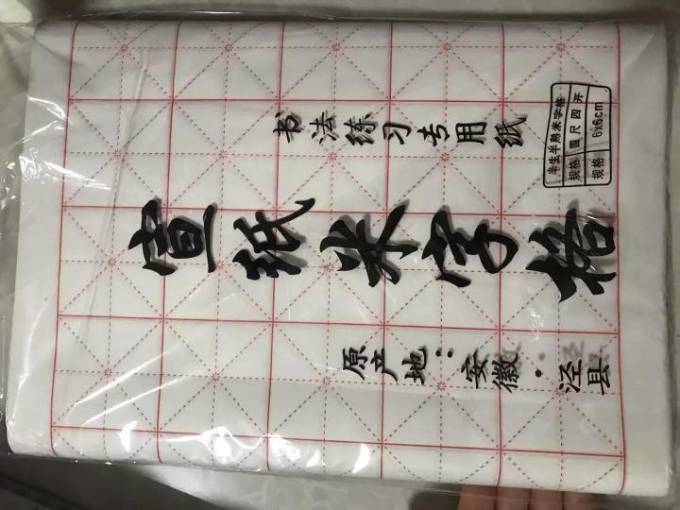 书法练习专用纸
半生半熟米字格
规格 四尺四开
规格 6x6cm
宣纸米字格
原产地：安徽·泾县